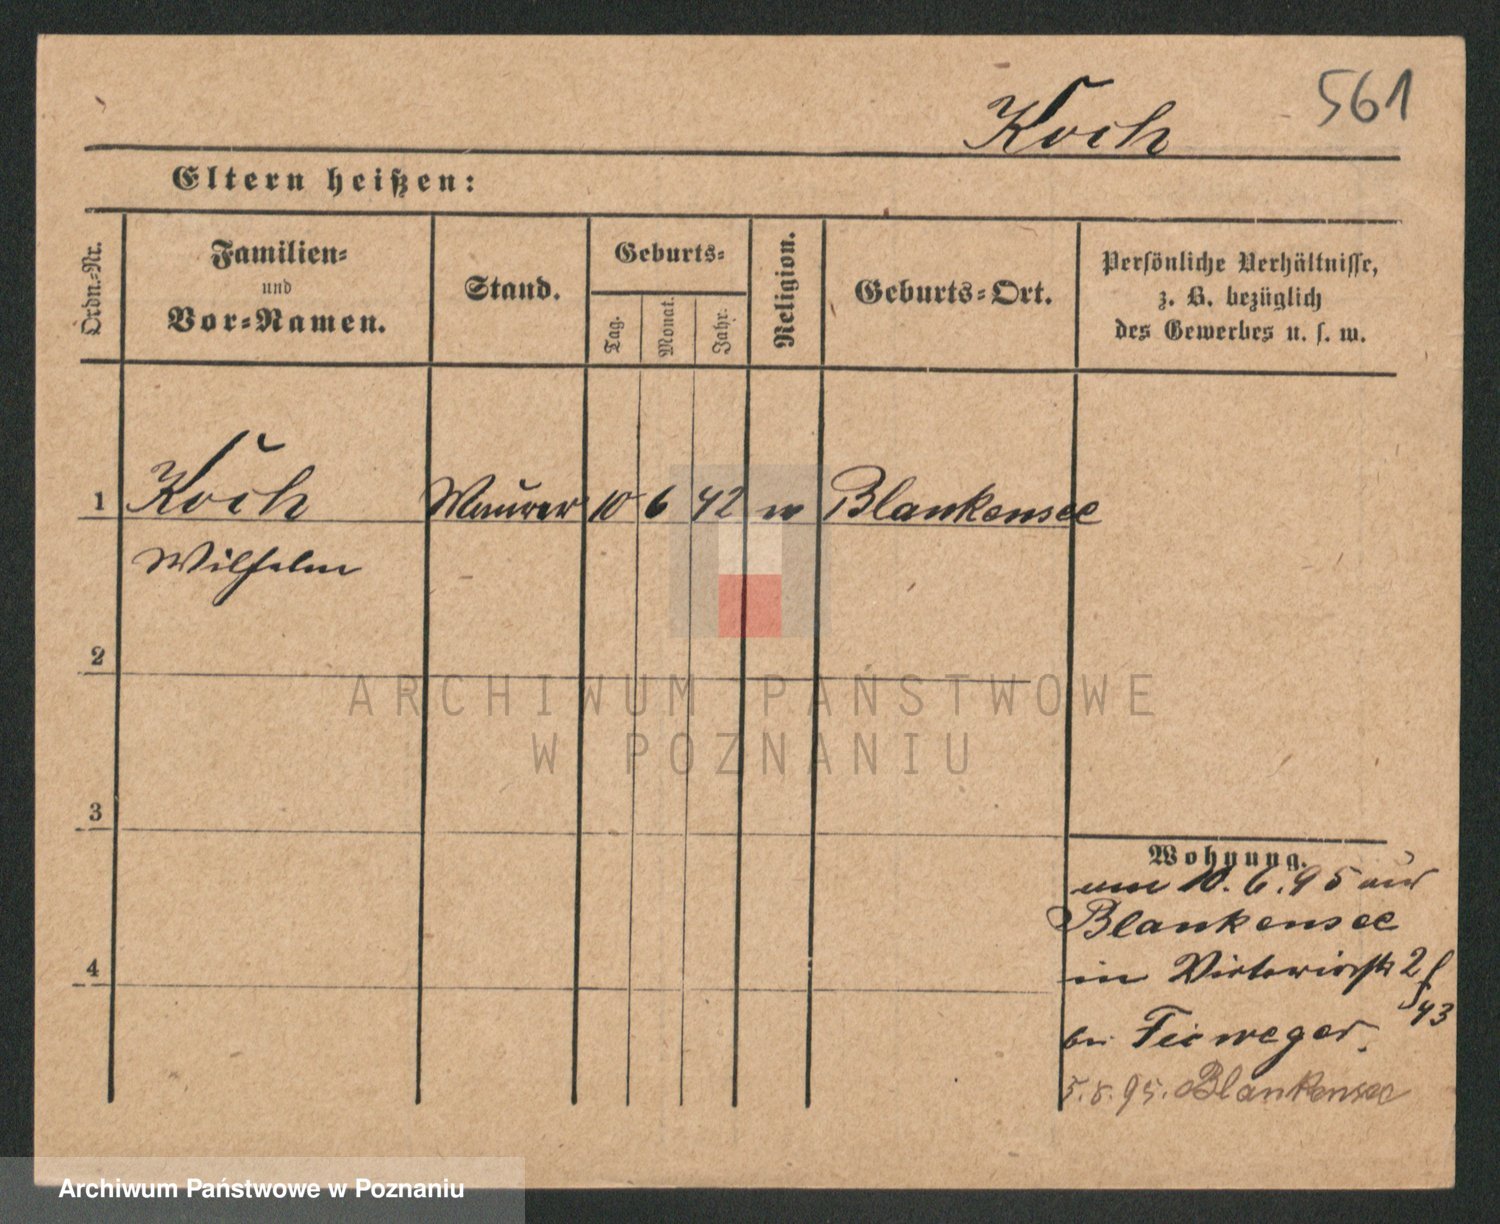 Koch 561
Eltern heißen:
Ordn.-Nr.
Familien-
und
Vor-Namen.
Stand.
Geburts-
Tag.
Monat.
Jahr.
Religion.
Geburts-Ort.
Persönliche Verhältnisse,
z. B. bezüglich
des Gewerbes u. s. w.
1 Koch Maurer 10 6 42 Blankensee
Wilhelm
2
3
4
Wohnung.
10. 6. 95 aus
Blankensee
in 2
43
bei
5. 8. 95. Blankensee
ARCHIWUM PAŃSTWOWE
W POZNANIU
Archiwum Państwowe w Poznaniu